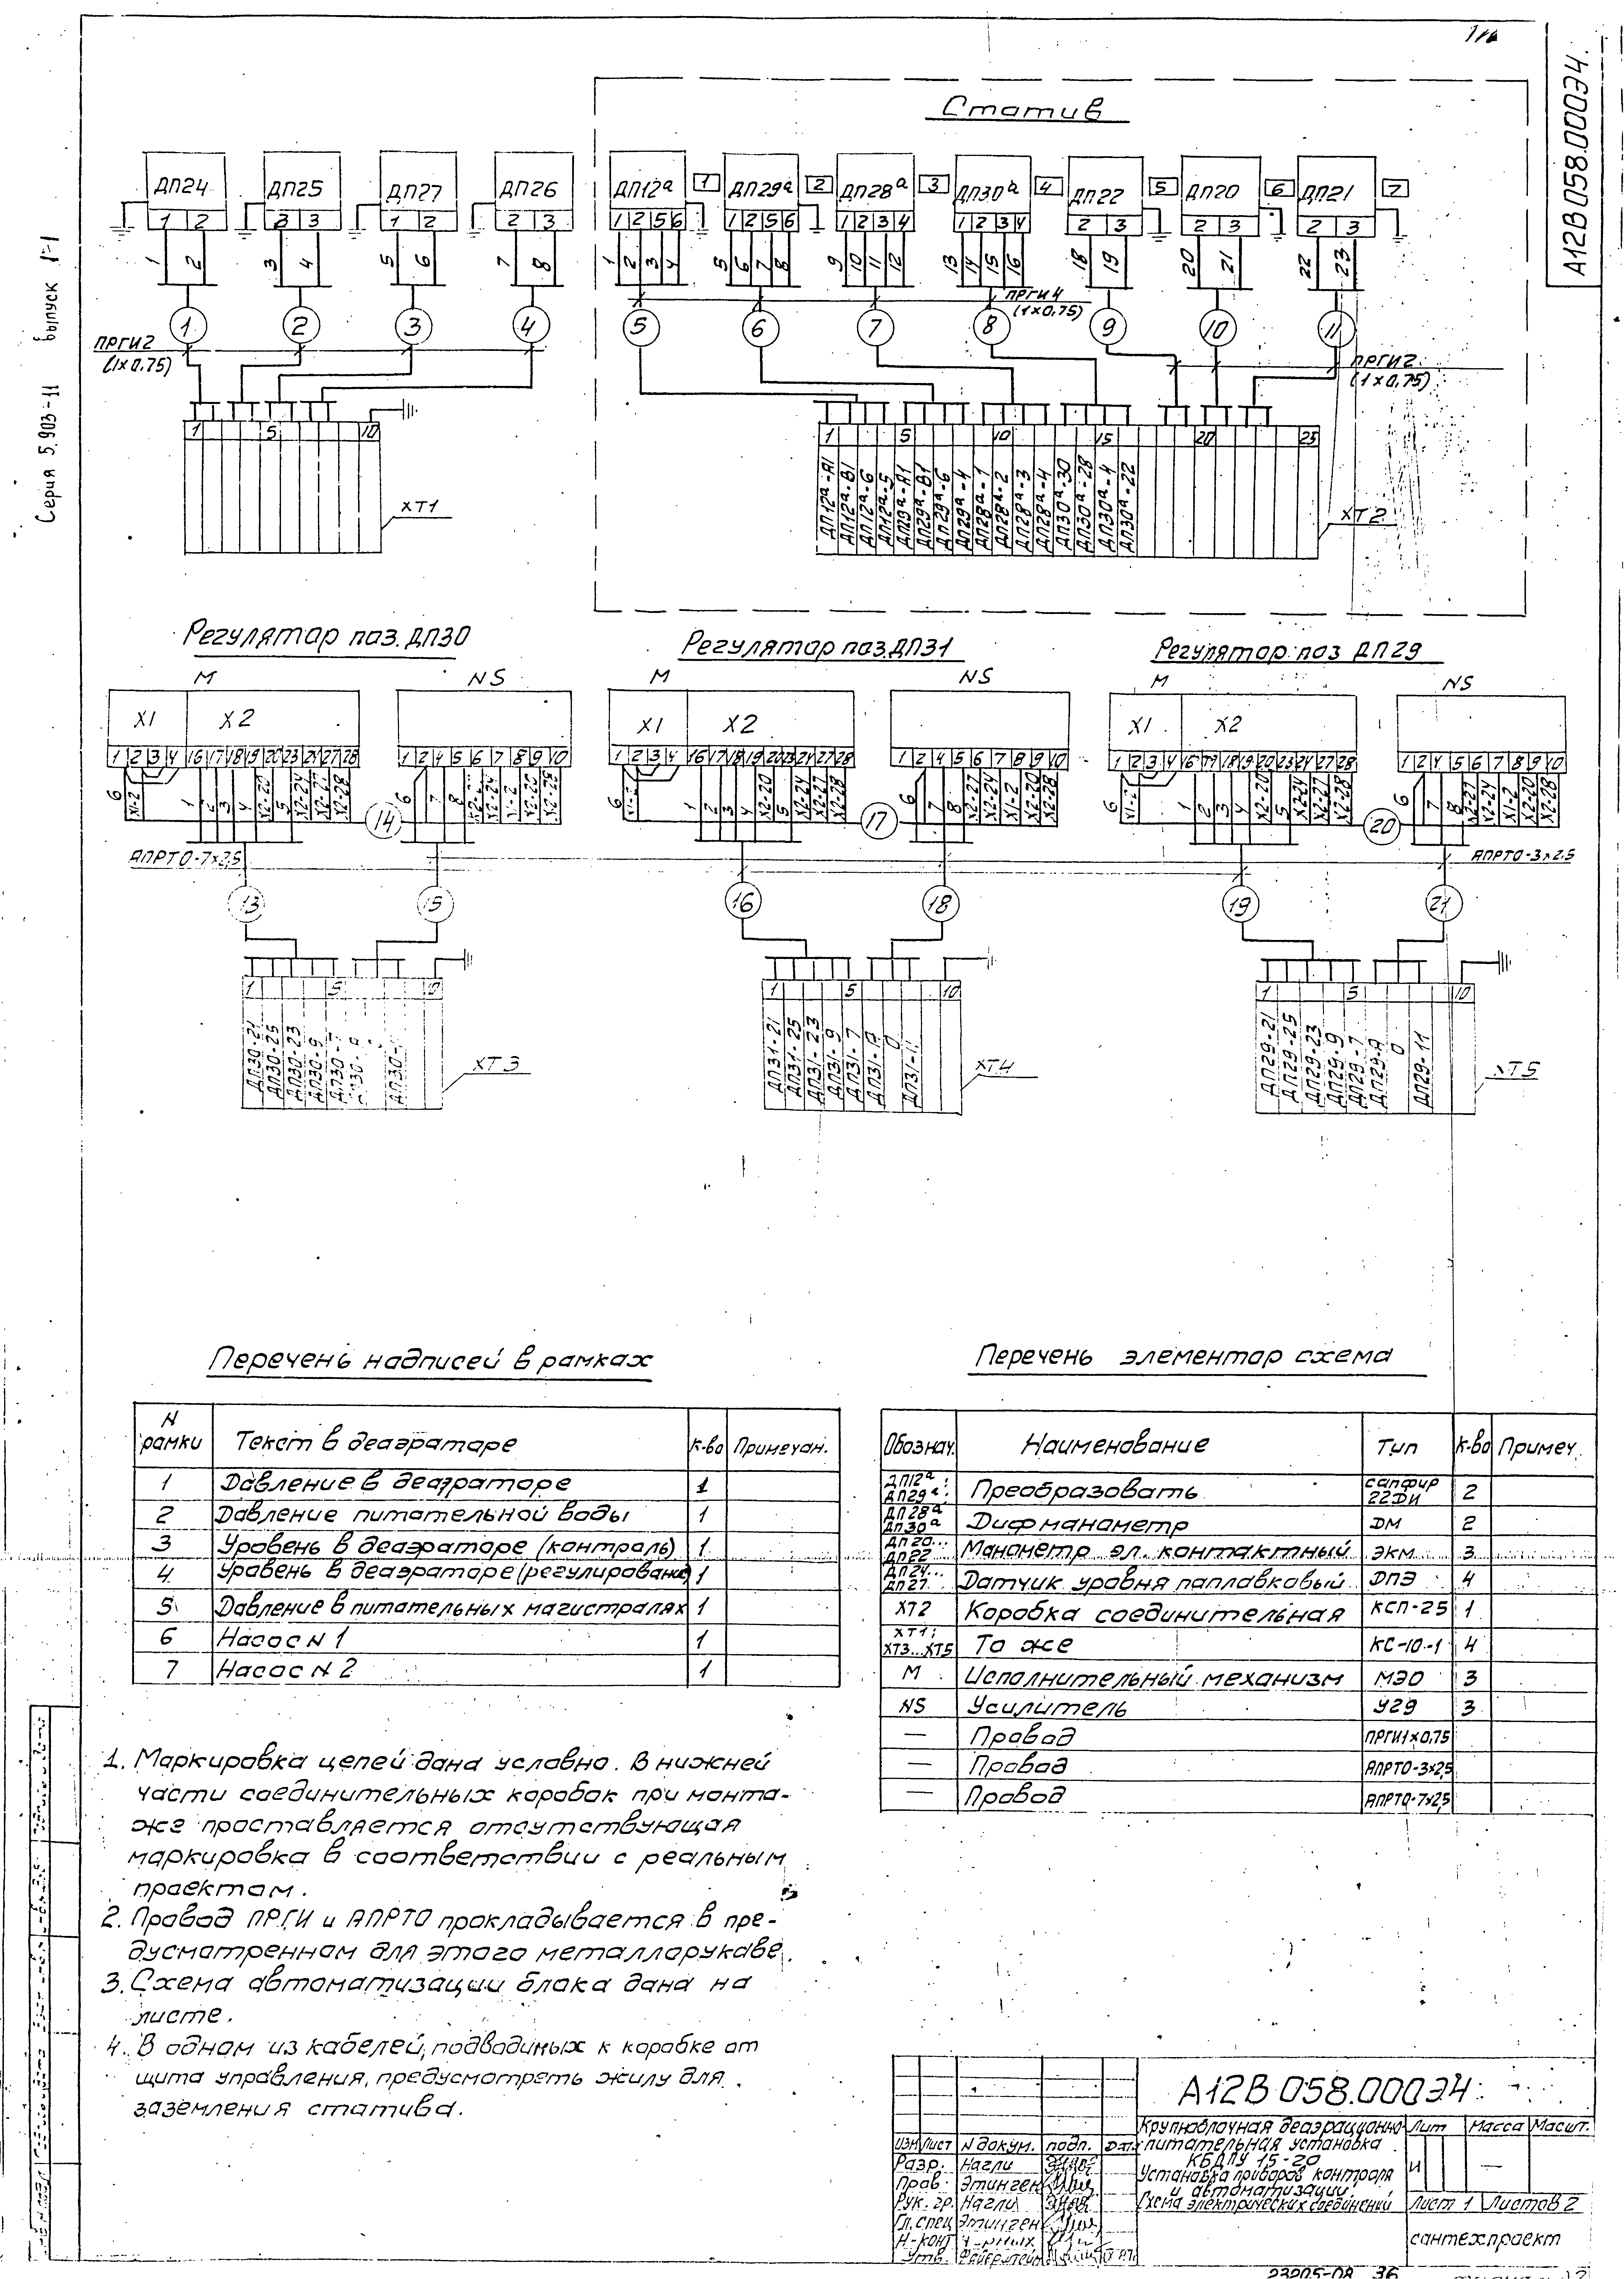 А12В058.000Э4.
Серия 5.903-11 выпуск 1-1
Статив
ДП24 ДП25 ДП27 ДП26 ДП12а 1 ДП29а 2 ДП28а 3 ДП30а 4 ДП22 5 ДП20 6 ДП21 7
1 2 3 3 1 2 2 3 1 2 5 6 1 2 5 6 1 2 3 4 1 2 3 4 2 3 2 3 2 3
1 2 3 4 5 6 7 8 1 2 3 4 5 6 7 8 9 10 11 12 13 14 15 16 18 19 20 21 22 23
ПРГИ4
(1х0,75)
1 2 3 4 5 6 7 8 9 10 11
ПРГИ2
(1х0,75)
ПРГИ2
(1х0,75)
1 5 10
1 5 10 15 20 25
ДП12а-А1
ДП12а-В1
ДП12а-6
ДП12а-5
ДП29а-А1
ДП29а-В1
ДП29а-6
ДП29а-4
ДП28а-1
ДП28а-2
ДП28а-3
ДП28а-4
ДП30а-30
ДП30а-28
ДП30а-4
ДП30а-22
ХТ1
ХТ2
Регулятор поз. ДП30 Регулятор поз.ДП31 Регулятор поз ДП29
М NS М NS М NS
Х1 Х2 Х1 Х2 Х1 Х2
1 2 3 4 16 17 18 19 20 23 24 27 28 1 2 4 5 6 7 8 9 10
1 2 3 4 16 17 18 19 20 23 24 27 28 1 2 4 5 6 7 8 9 10
1 2 3 4 16 17 18 19 20 23 24 27 28 1 2 4 5 6 7 8 9 10
14 17 20
АПРТО-7х2,5
АПРТО-3х2.5
13 15 16 18 19 21
1 5 10 1 5 10 1 5 10
ДП30-21
ДП30-25
ДП30-23
ДП30-9
ХТ3
ДП31-21
ДП31-25
ДП31-23
ДП31-9
ДП31-7
ДП31-А
0
ДП31-11
ХТ4
ДП29-21
ДП29-25
ДП29-23
ДП29-9
ДП29-7
ДП29-А
0
ДП29-11
ХТ5
Перечень надписей в рамках
N рамки Текст в деаэраторе К-во Примечан.
1 Давление в деаэраторе 1
2 Давление питательной воды 1
3 Уровень в деаэраторе (контроль) 1
4 Уровень в деаэраторе (регулирован) 1
5 Давление в питательных магистралях 1
6 Насос N 1 1
7 Насос N 2 1
Перечень элементор схема
Обознач. Наименование Тип К-во Примеч.
ДП12а; ДП29а; Преобразовать сапфир 22ДИ 2
ДП28а ДП30а Дифманометр ДМ 2
ДП20... ДП22 Манометр эл. контактный ЭКМ 3
ДП24... ДП27 Датчик уровня паплавковый ДПЭ 4
ХТ2 Коробка соединительная КСП-25 1
ХТ1; ХТ3...ХТ5 То же КС-10-1 4
М Исполнительный механизм МЭО 3
NS Усилитель У29 3
— Провод ПРГИ1х0,75
— Провод АПРТО-3х2,5
— Провод АПРТО-7х2,5
1. Маркировка цепей дана условно. В нижней
части соединительных коробок при монта-
же проставляется отсутствующая
маркировка в соответствии с реальным
проектом.
2. Провод ПРГИ и АПРТО прокладывается в пре-
дусмотренном для этого металлорукаве.
3. Схема автоматизации блока дана на
листе.
4. В одном из кабелей, подводимых к коробке от
щита управления, предусмотреть жилу для
заземления статива.
А12В058.000Э4
Крупноблочная деаэрационно
питательная установка
КБДПУ 15-20
Установка приборов контроля
и автоматизации.
Схема электрических соединений
Лит Масса Масшт.
И —
Лист 1 Листов 2
сантехпроект
Изм Лист N докум. подп. Дата
Разр. Нагли
Пров. Этинген
Рук. гр. Нагли
Гл. спец Этинген
Н-конт
Утв.
23205-08 36